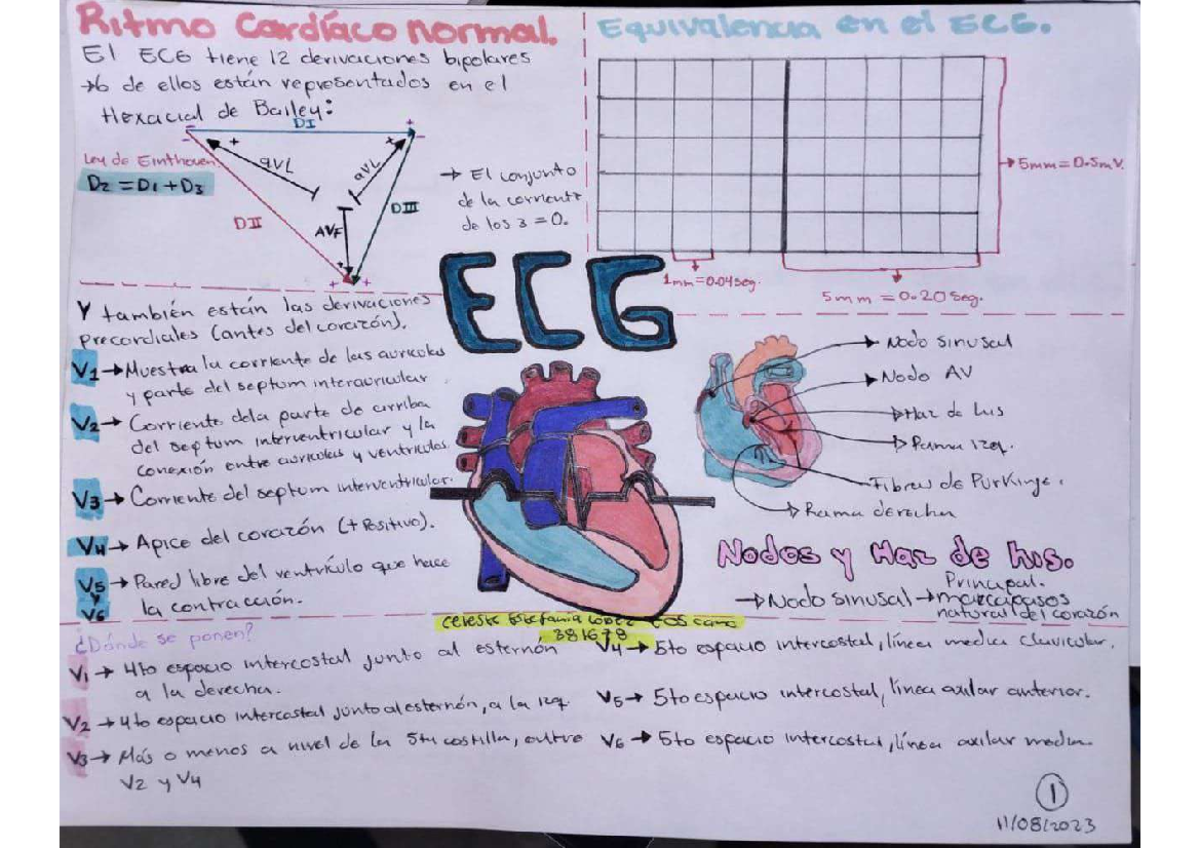 Ritmo Cardíaco normal.
El ECG tiene 12 derivaciones bipolares
→6 de ellos están representados en el
Hexacial de Bailey:
DI
Ley de Einthoven.
D2 = D1 + D3
aVL
aVL
AVF
DII
DIII
→ El conjunto
de la corriente
de los 3 = 0.
Equivalencia en el ECG.
→5mm=0.5mV.
1mm=0.04seg.
5mm = 0.20 seg.
ECG
Y también están las derivaciones
precordiales (antes del corazón).
V1→Muestra la corriente de las auriculas
y parte del septum interauricular
V2→ Corriente dela parte de arriba
del septum interventricular y la
conexión entre auriculas y ventriculos.
V3→ Corriente del septum interventricular.
V4→ Apice del corazón (+ Positivo).
V5 → Pared libre del ventrículo que hace
y la contracción.
V6
→ Nodo sinusal
→Nodo AV
→Haz de his
→Rama izq.
→Fibras de Purkinje.
→Rama derecha
Nodos y Haz de his.
→Nodo sinusal→ Principal.
marcapasos
natural del corazón
381678
¿Dónde se ponen?
V1→ 4to espacio intercostal junto al esternón
a la derecha.
V2→4to espacio intercostal junto al esternón, a la izq.
V3→ Más o menos a nivel de la 5ta costilla, entre
V2 y V4
V4→ 5to espacio intercostal, línea media clavicular.
V5→ 5to espacio intercostal, línea axilar anterior.
V6→ 5to espacio intercostal, línea axilar media.
1
11/08/2023